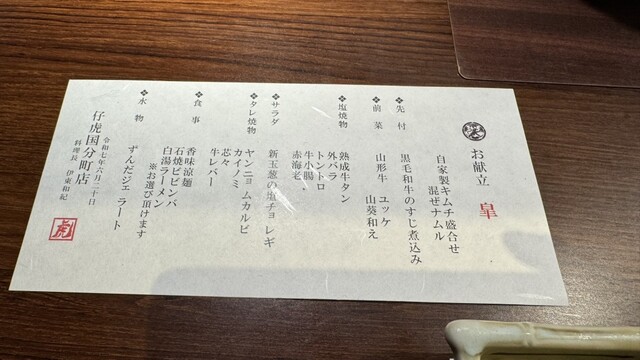 お献立 皐
自家製キムチ盛合せ
混ぜナムル
❖先付 黒毛和牛のすじ煮込み
❖前菜 山形牛 ユッケ 山葵和え
❖塩焼物 熟成牛タン
外バラ
トントロ
牛小腸・
赤海老
❖サラダ 新玉葱の塩チョレギ
❖タレ焼物 ヤンニョムカルビ
カイノミ
芯々
牛レバー
❖食事 香味涼麺
石焼ビビンバ
白湯ラーメン
※お選び頂けます
❖水物 ずんだジェラート
令和七年六月二十日
仔虎国分町店
料理長 伊東和紀
虎